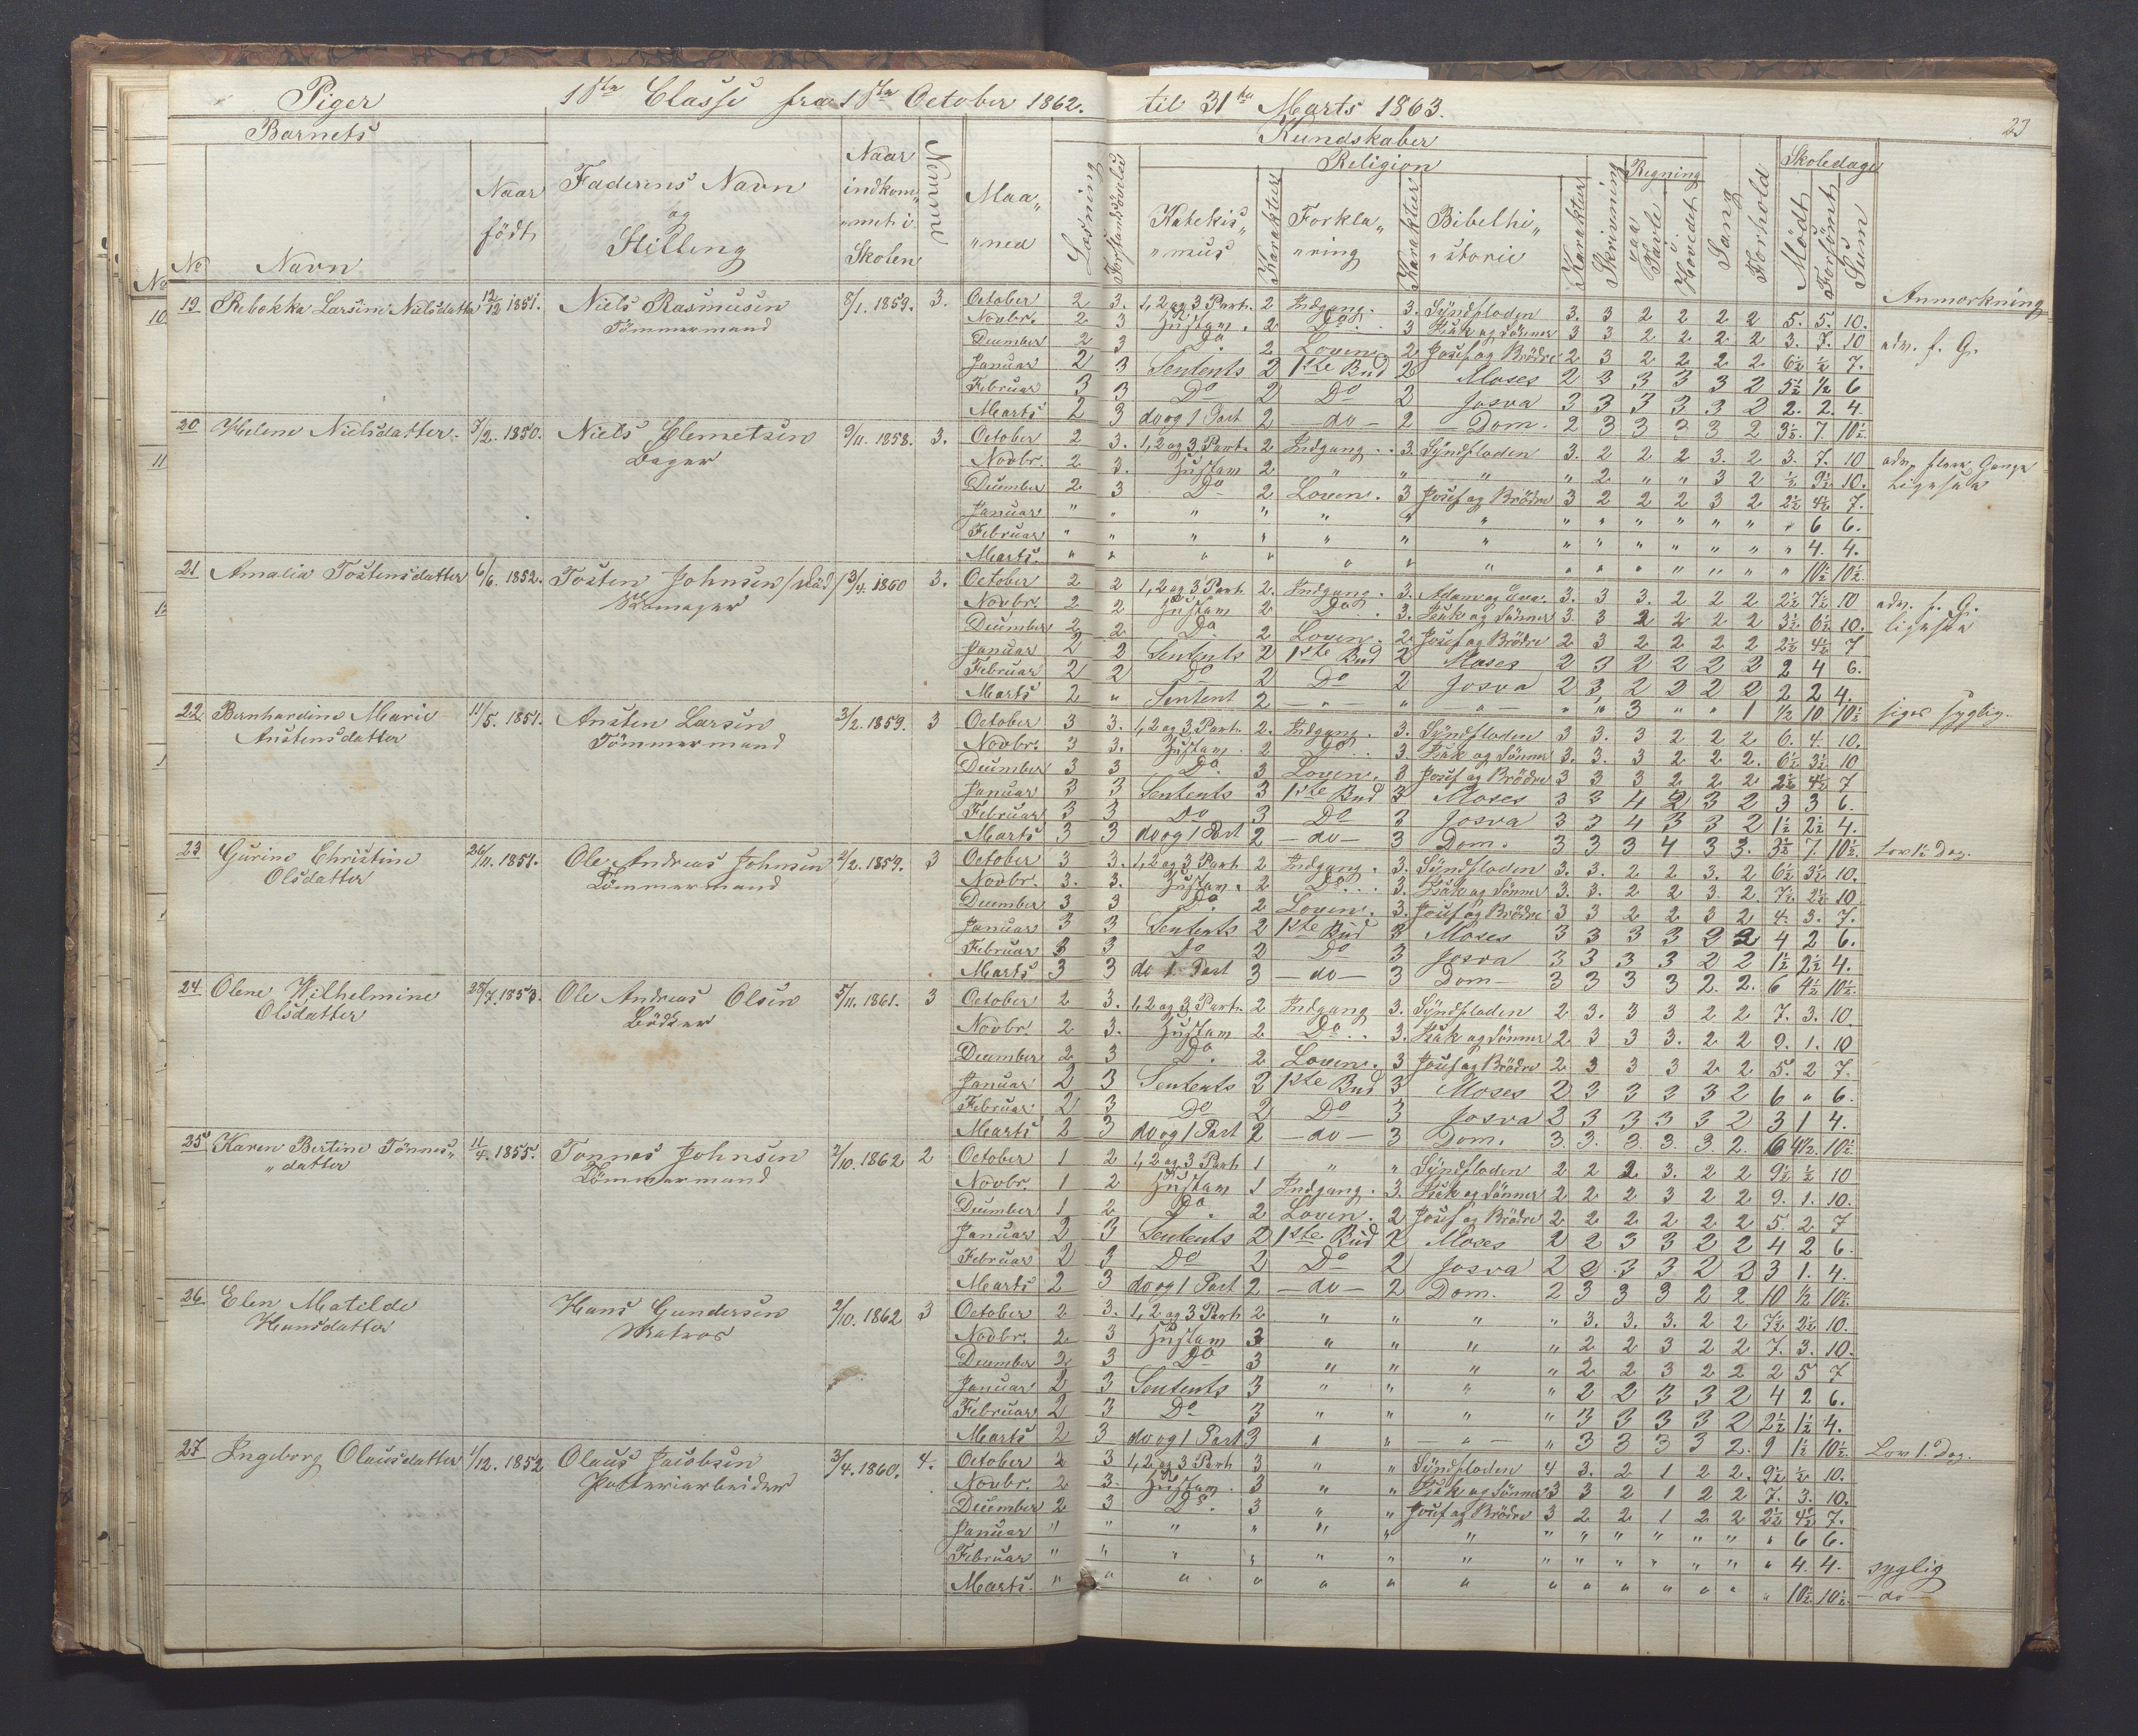 Piger 1ste Classe fra 1ste October 1862. til 31te Marts 1863.
23
Barnets Kundskaber
Religion Regning Skoledage
No Navn Naar födt Faderens Navn og Stilling Naar indkom„ „met i Skolen Nummer Maa„ „ned Læsning Forstandsövelse Katekis„ „mus Karakter Forkla„ „ring Karakter Bibelhi„ „storie Karakter Skrivning paa Tavle i Hovedet Sang Forhold Mödt Forsömt Sum Anmærkning
19 Rebekka Larsine Nielsdatter 12/12 1851. Niels Rasmusen 8/1. 1859. 3. October 2 3. 1, 2 og 3 Part. 2 Indgang. 3. Syndfloden 3. 3 2 2 2 2 5. 5. 10.
Tömmermand Novbr. 2 3 2 Do. 3 Isak og Sönner 3 3 2 2 2 2 3. 7. 10 adv. f. G.
December 2 3 Do. 2 Loven. 2 Josef og Brödre 2 3 2 2 2 2 6½ ½ 7.
Januar 2 3 Sentents 2 1ste Bud 2 Moses 2 3 3 3 3 2 5½ ½ 6
Februar 3 3 Do 2 Do 2 Josva 3 3 3 3 3 2 2. 2. 4.
Marts 2 3 do og 1 Part 2 — do — 2 Dom. 2 3 3 3 3 2 3½. 7. 10½.
20 Helene Nielsdatter. 5/2. 1850. Niels Clemetsen 9/11. 1858. 3. October 2 3. 1, 2 og 3 Part. 2 Indgang.. 3. Syndfloden 3. 2 2 2 3. 2 3. 7. 10 adv. flere Gange
Bager Novbr. 2 3. 2 „ „ „ „ 2 „ „ 3 2 ½ 9½ 10. ligesaa
December 2 3 Do 2 Loven. 3 Josef og Brödre 3 2 2 2 3 2 2½ 4½ 7.
Januar „ „ „ „ „ „ „ „ „ „ „ „ „ „ 6 6.
Februar „ „ „ „ „ „ „ „ „ „ „ „ „ „ 4. 4.
Marts. „ „ „ „ „ „ „ „ „ „ „ „ „ „ 10½ 10½.
21 Amalia Tostensdatter 6/6. 1852. Tosten Johnsen /död/ 3/4. 1860 3. October 2 2 1, 2 og 3 Part. 2. Indgang. 3. Adam og Eva. 3. 3 3. 2 2 2 2½ 7½ 10 adv. f. G.
Skomager Novbr. 2 2 2 Do. 3. Isak og Sönner 3. 3 2 2 2 2 3½ 6½ 10. ligesaa
December 2 2 Do 2 Loven. 2. Josef og Brödre 2 3 2 2 2 2 2½ 4½ 7
Januar 2 2 Sentents 2 1ste Bud 2 Moses 2 3 2 2 2 2 2 4 6.
Februar 2 2 Do 2 Do 2 Josva 2 3 2 2 2 2 2 2 4.
Marts 2 „ Sentent 2 — „ — „ — „ — „ „ 3 „ „ 1 ½ 10 10½ siges sygelig.
22 Bernhardine Marie 11/5. 1851. Austen Larsen 3/2. 1859. 3 October 3 3. 1, 2 og 3 Part. 2. Indgang. 3. Syndfloden 3 3. 3 2 2 2 6. 4. 10.
Austensdatter Tömmermand Novbr. 3 3. 2 Do. 3. Isak og Sönner 3. 3. 3 2 2 2. 6½ 3½ 10
December 3 3 Do. 3 Loven. 3 Josef og Brödre 3 3 3 2 2 2 2½ 4½ 7
Januar 3 3 Sentents 3 1ste Bud 3 Moses 3 3 4 2 3 2 3 3 6.
Februar 3 3 Do 3 Do 3 Josva 3 3 4 3 3 2 1½ 2½ 4.
Marts 3 3 do og 1 Part 2 — do — 3 Dom. 3 3 3 4 3 3. 3½ 7 10½. Lov 1½ Dag.
23 Gurine Christine 26/11. 1851. Ole Andreas Johnsen 2/2. 1859. 3 October 3 3. 1, 2 og 3 Part 2 Indgang. 3. Syndfloden 3. 3. 2 2 3. 2 6½ 3½ 10.
Olsdatter Tömmermand Novbr. 3. 3. 2 Do.. 3. Isak og Sönner 3. 3. 2 2 3. 2. 7½ 2½ 10
December 3 3 Do. 2 Loven. 3. Josef og Brödre 3 3 2 2 3 2 4. 3. 7.
Januar 3 3 Sentents 2 1ste Bud 3 Moses 3 3 3 3 2 2 4 2 6.
Februar 3 3 Do 2 Do 3 Josva 3 3 3 3 2 2 1½ 2½ 4.
Marts 3 3 do 1 Part 3 — do — 3 Dom — 3 3 3 3 2. 2. 6 4½ 10½.
24 Olene Wilhelmine 28/7. 1853. Ole Andreas Olsen 5/11. 1861. 3 October 2 3. 1, 2 og 3 Part. 2 Indgang 3. Syndfloden 2 3. 3 3 2 2 7. 3. 10.
Olsdatter Bödker Novbr 2 3. 2 Do.. 3. Isak og Sönner 2 3 3 3. 2 2 9. 1. 10
December 2 3 Do. 2 Loven. 3 Josef og Brödre 2 3 3 3 2 2 5. 2 7.
Januar 2 3 Sentents 2 1ste Bud 3 Moses 2 3 3 3 3 2 6 „ 6.
Februar 2 3 Do 2 Do 3 Josva 2 3 3 3 3 2 3 1 4.
Marts 2 3 do og 1 Part 2 — do — 3 Dom. 3. 3. 3. 3. 3. 2. 6 4½. 10½
25 Karen Bertine Tönnes„ 11/4. 1855. Tonnes Johnsen 2/10. 1862 2 October 1 2 1, 2 og 3 Part 1 „ „ Syndfloden 2 2 2 3. 2 2 9½ ½ 10
„datter Tömmermand Novbr. 1 2 1 Indgang. 3. Isak og Sönner 2 2 2 3 2 2 9. 1. 10.
December 1 2 Do. 2 Loven. 2 Josef og Brödre 2 2 2 2 2 2 5. 2. 7
Januar 2 3 Sentents 2 1ste Bud 2 Moses 2 2 3 3 2 2 4 2 6.
Februar 2 3 Do 2 Do 2 Josva 2 2 3 3 2 2 3 1. 4.
Marts 2 3 do og 1 Part 2 — do — 2 Dom. 2 3 3 3 2 2 10 ½ 10½.
26 Elen Matilde Hans Gundersen 2/10. 1862 3 October 2 3. 1, 2 og 3 Part 2 „ „ „ „ 3. 3. 3. 2 2 7½ 2½ 10.
Hansdatter Matros Novbr. 2 3 3 „ „ „ „ 2 2 3 2 2 7. 3. 10.
December 2 3 Do 3 „ „ „ „ 2 2 3 2 2 2 5 7
Januar 2 3 Sentents 3 „ „ „ „ 2 2 3 3 2 4 2 6.
Februar 2 3 Do 3 „ „ „ „ 3 3 3 3 2 2½ 1½ 4.
Marts 2 3 do og 1 Part 3 „ „ „ — „ 3 3 3 3 2. 9 1½ 10½ Lov 1. Dag.
27 Ingeborg Olausdatter 1/12. 1852 Olaus Jacobsen 3/4. 1860. 4. October 2 3 1, 2 og 3 Part 3 „ „ Syndfloden 4 3. 2 1 2 2. 9½ ½ 10.
Potteriarbeider Novbr. 2 3. 3 „ „ Isak og Sönner 3 3 2 1 2 2 7. 3. 10.
December 2 3 Do. 3 „ „ Josef og Brödre 3 2 2 1 2 2 2½ 4½ 7.
Januar „ „ „ „ „ „ „ „ „ „ „ „ „ „ 6 6.
Februar „ „ „ „ „ „ „ „ „ „ „ „ „ „ 4. 4. syglig
Marts. „ „ „ „ „ „ „ „ „ „ „ „ „ „ 10½ 10½ — do —